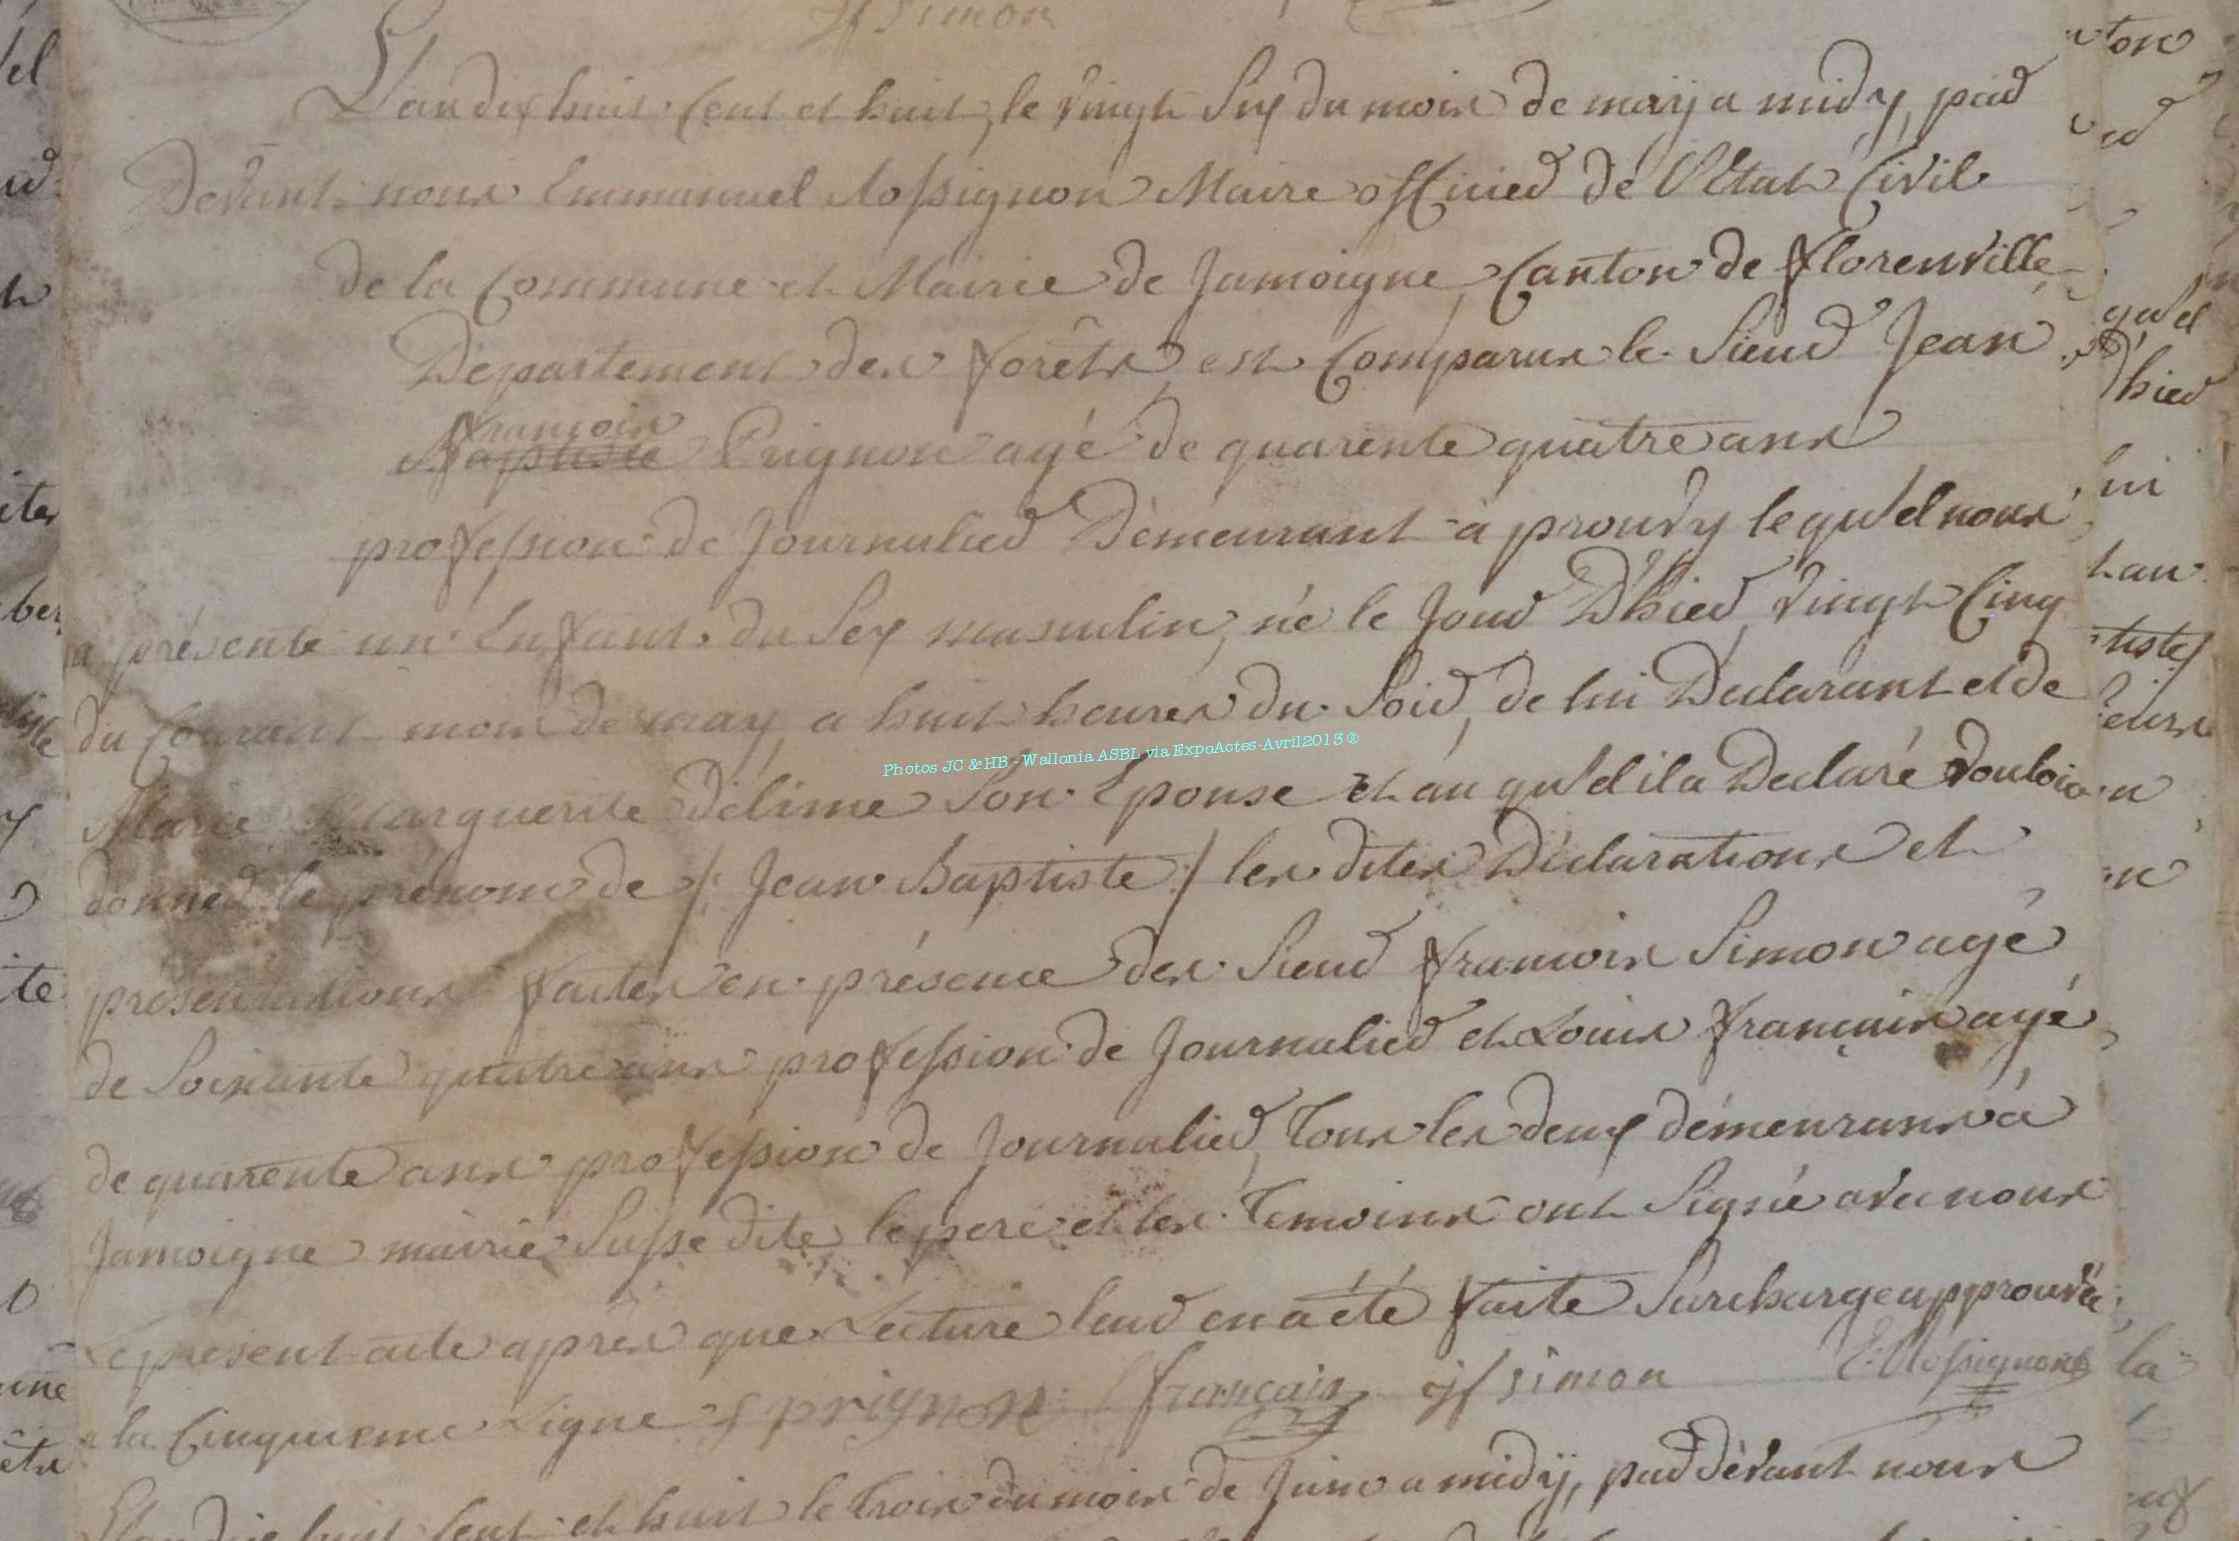 Simon
L'an dix huit Cent et huit, le vingt Six du mois de maÿ a midÿ, par
Devant nous Emmanuel Rossignon Maire officier de L'Etat Civil
de la Commune et Mairie de Jamoigne, Canton de Florenville,
Departement des forêts, est Comparus le Sieur Jean
françois
Baptiste Prignon agé de quarente quatre ans
profession de Journalier Démeurant à prouvy lequ'el nous
a présenté un Enfant du Sex masculin, né le Jour D'hier, vingt Cinq
du Courant mois de may, a huit heures du Soir, de lui Declarant et de
Photos JC & HB - Wallonia ASBL via ExpoActes-Avril2013 ®
Marie Marguerite Délime Son Epouse et au qu'el il a Declaré vouloir
donner le prénom de /: Jean Baptiste :/ les dites Déclarations et
presentations faites en présence des Sieur françois Simon agé
de Soixante quatre ans profession de Journalier et Louis français agé
de quarente ans profession de Journalier, Tous les deux démeurans à
Jamoigne mairie Susse dite, le pere et les Temoins ont Signé avec nous
le présent acte après que Lecture leur en a été faite Surcharge approuvée
a la Cinquieme Ligne prignon français jf simon E. Rossignon
L'an dix huit Cent et huit le trois du mois de Juin a midÿ, par dévant nous